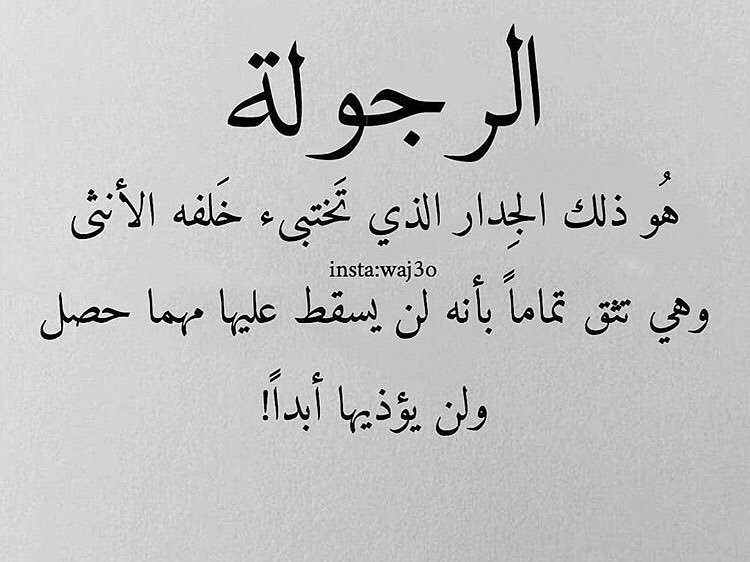 الرجولة
هُو ذلك الجِدار الذي تَختبىء خَلفه الأنثى
insta:waj3o
وهي تثق تماماً بأنه لن يسقط عليها مهما حصل
ولن يؤذيها أبداً!